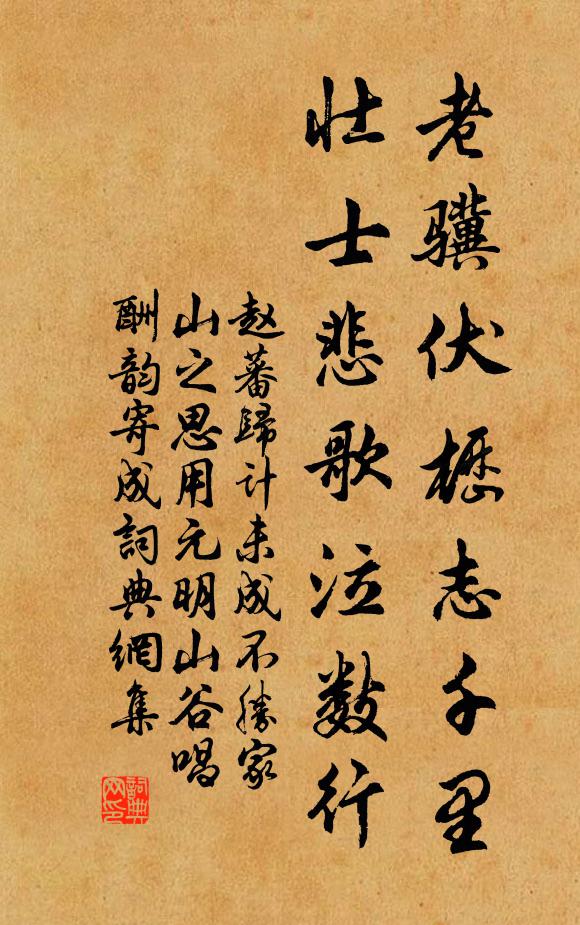 老驥伏櫪志千里
壯士悲歌泣數行
赵蕃歸计未成不勝家
山之思用元明山谷唱
酬韵寄成詞典網集
詞典
网印